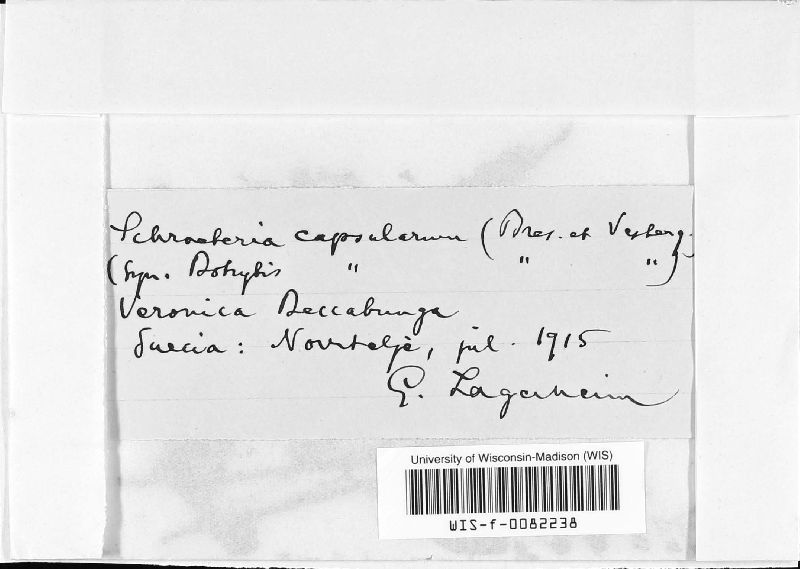 Schroeteria capsularum (Bres. et Vesterg.
(Syn. Botrytis " " ")
Veronica Beccabunga
Suecia: Norrtelje, jul. 1915
G. Lagerheim
University of Wisconsin-Madison (WIS)
WIS-f-0082238